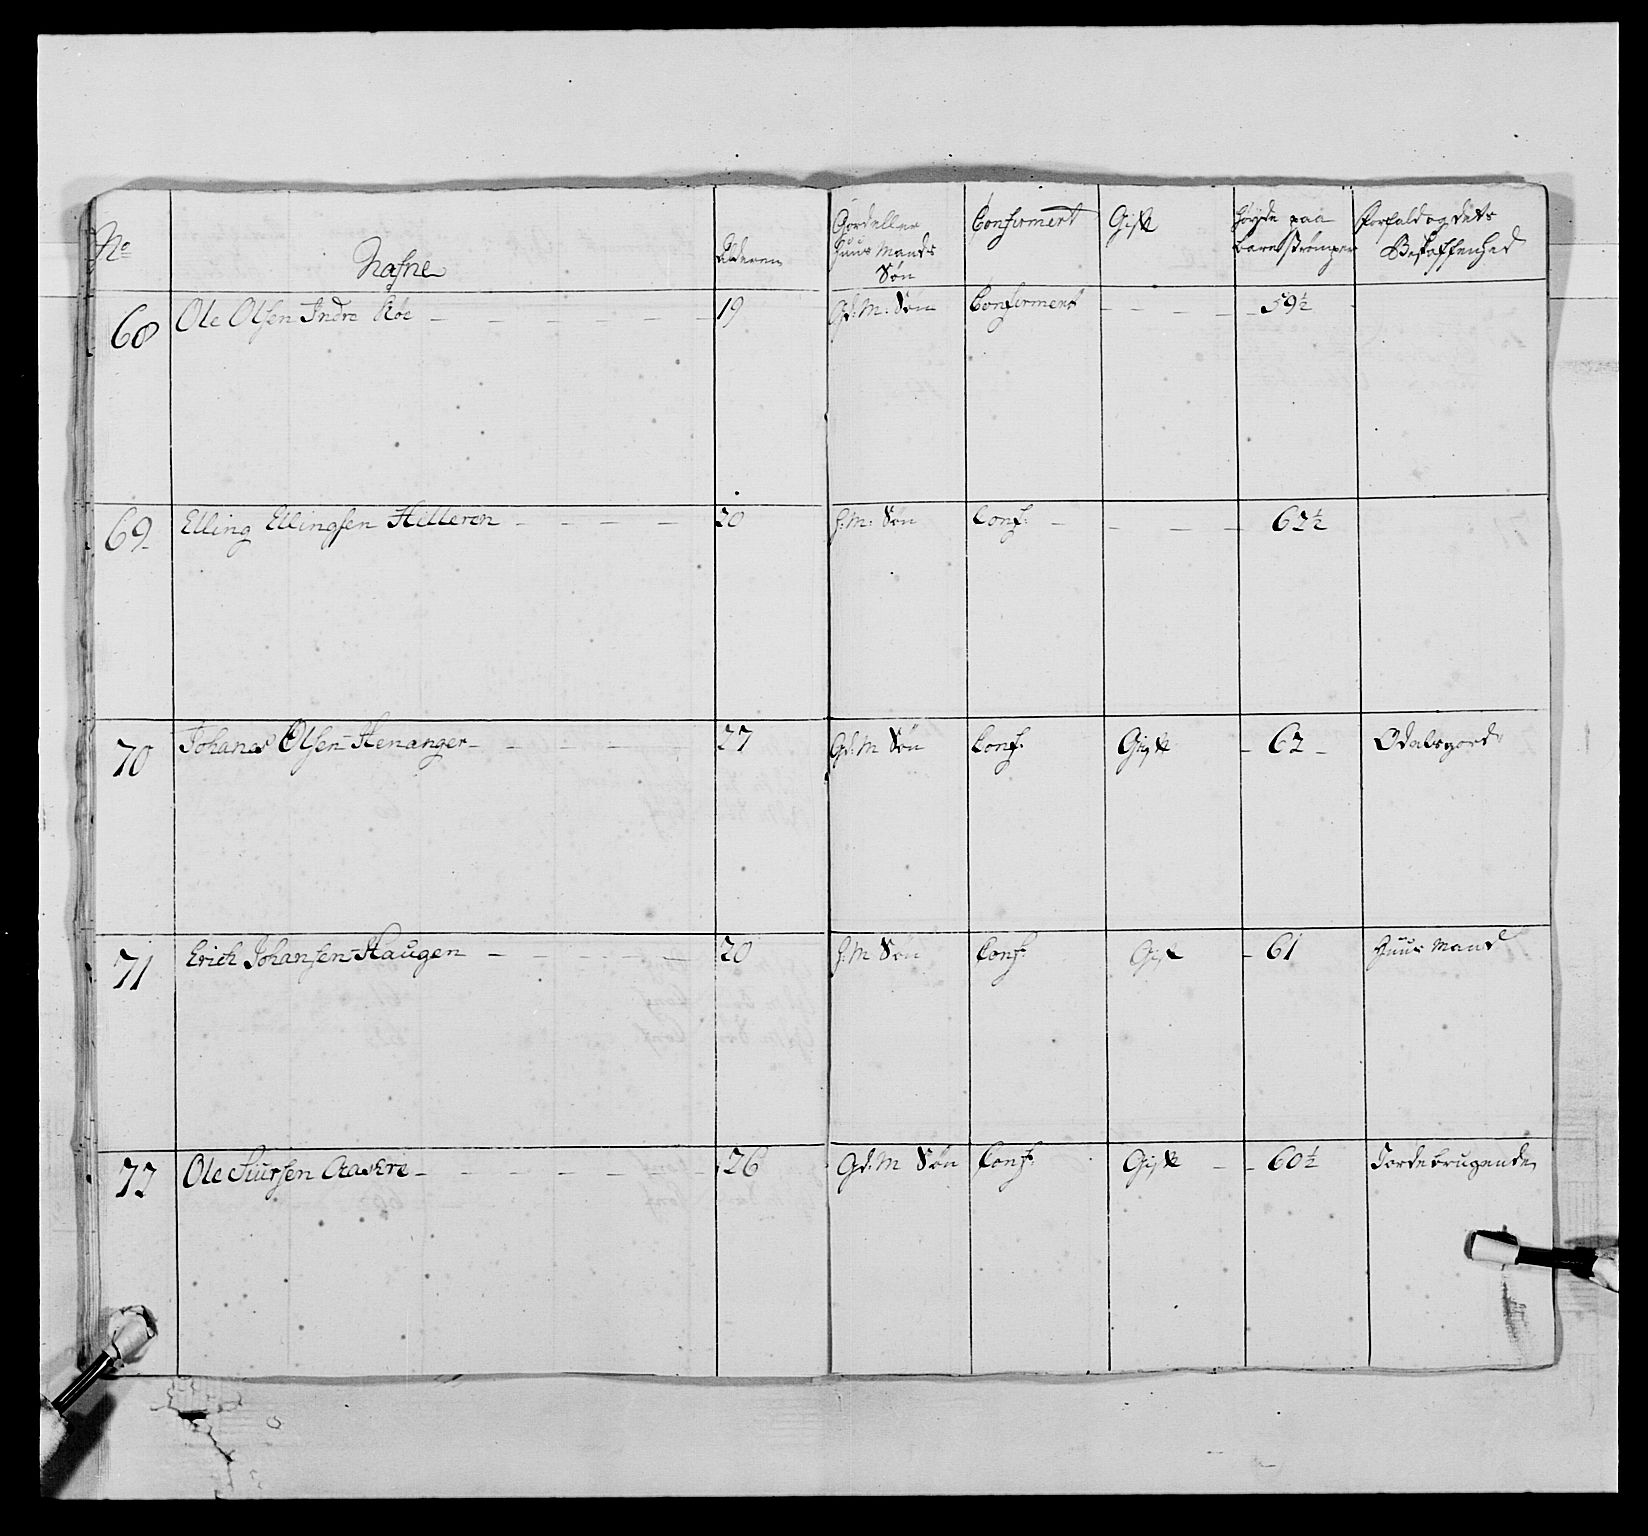 No Nafne Alderen Gordeller Huus Mands Søn Confirmert Gift Høyde paa bare Strømper Forfald og dets Beskaffenhed
68 Ole Olsen Indre Røe 19 Gd: M: Søn Confirmert 59½
69 Elling Ellingsen Hilleren 20 H: M: Søn Conf: 62½
70 Johanes Olsen Henanger 27 Gd: M Søn Conf: Gift 62 Odalsgord
71 Erich Johansen Haugen 20 H: M Søn Conf: Gift 61 Huus Mand
72 Ole Siursen 26 Gd: M Søn Conf: Gift 60½ Jordebrugende